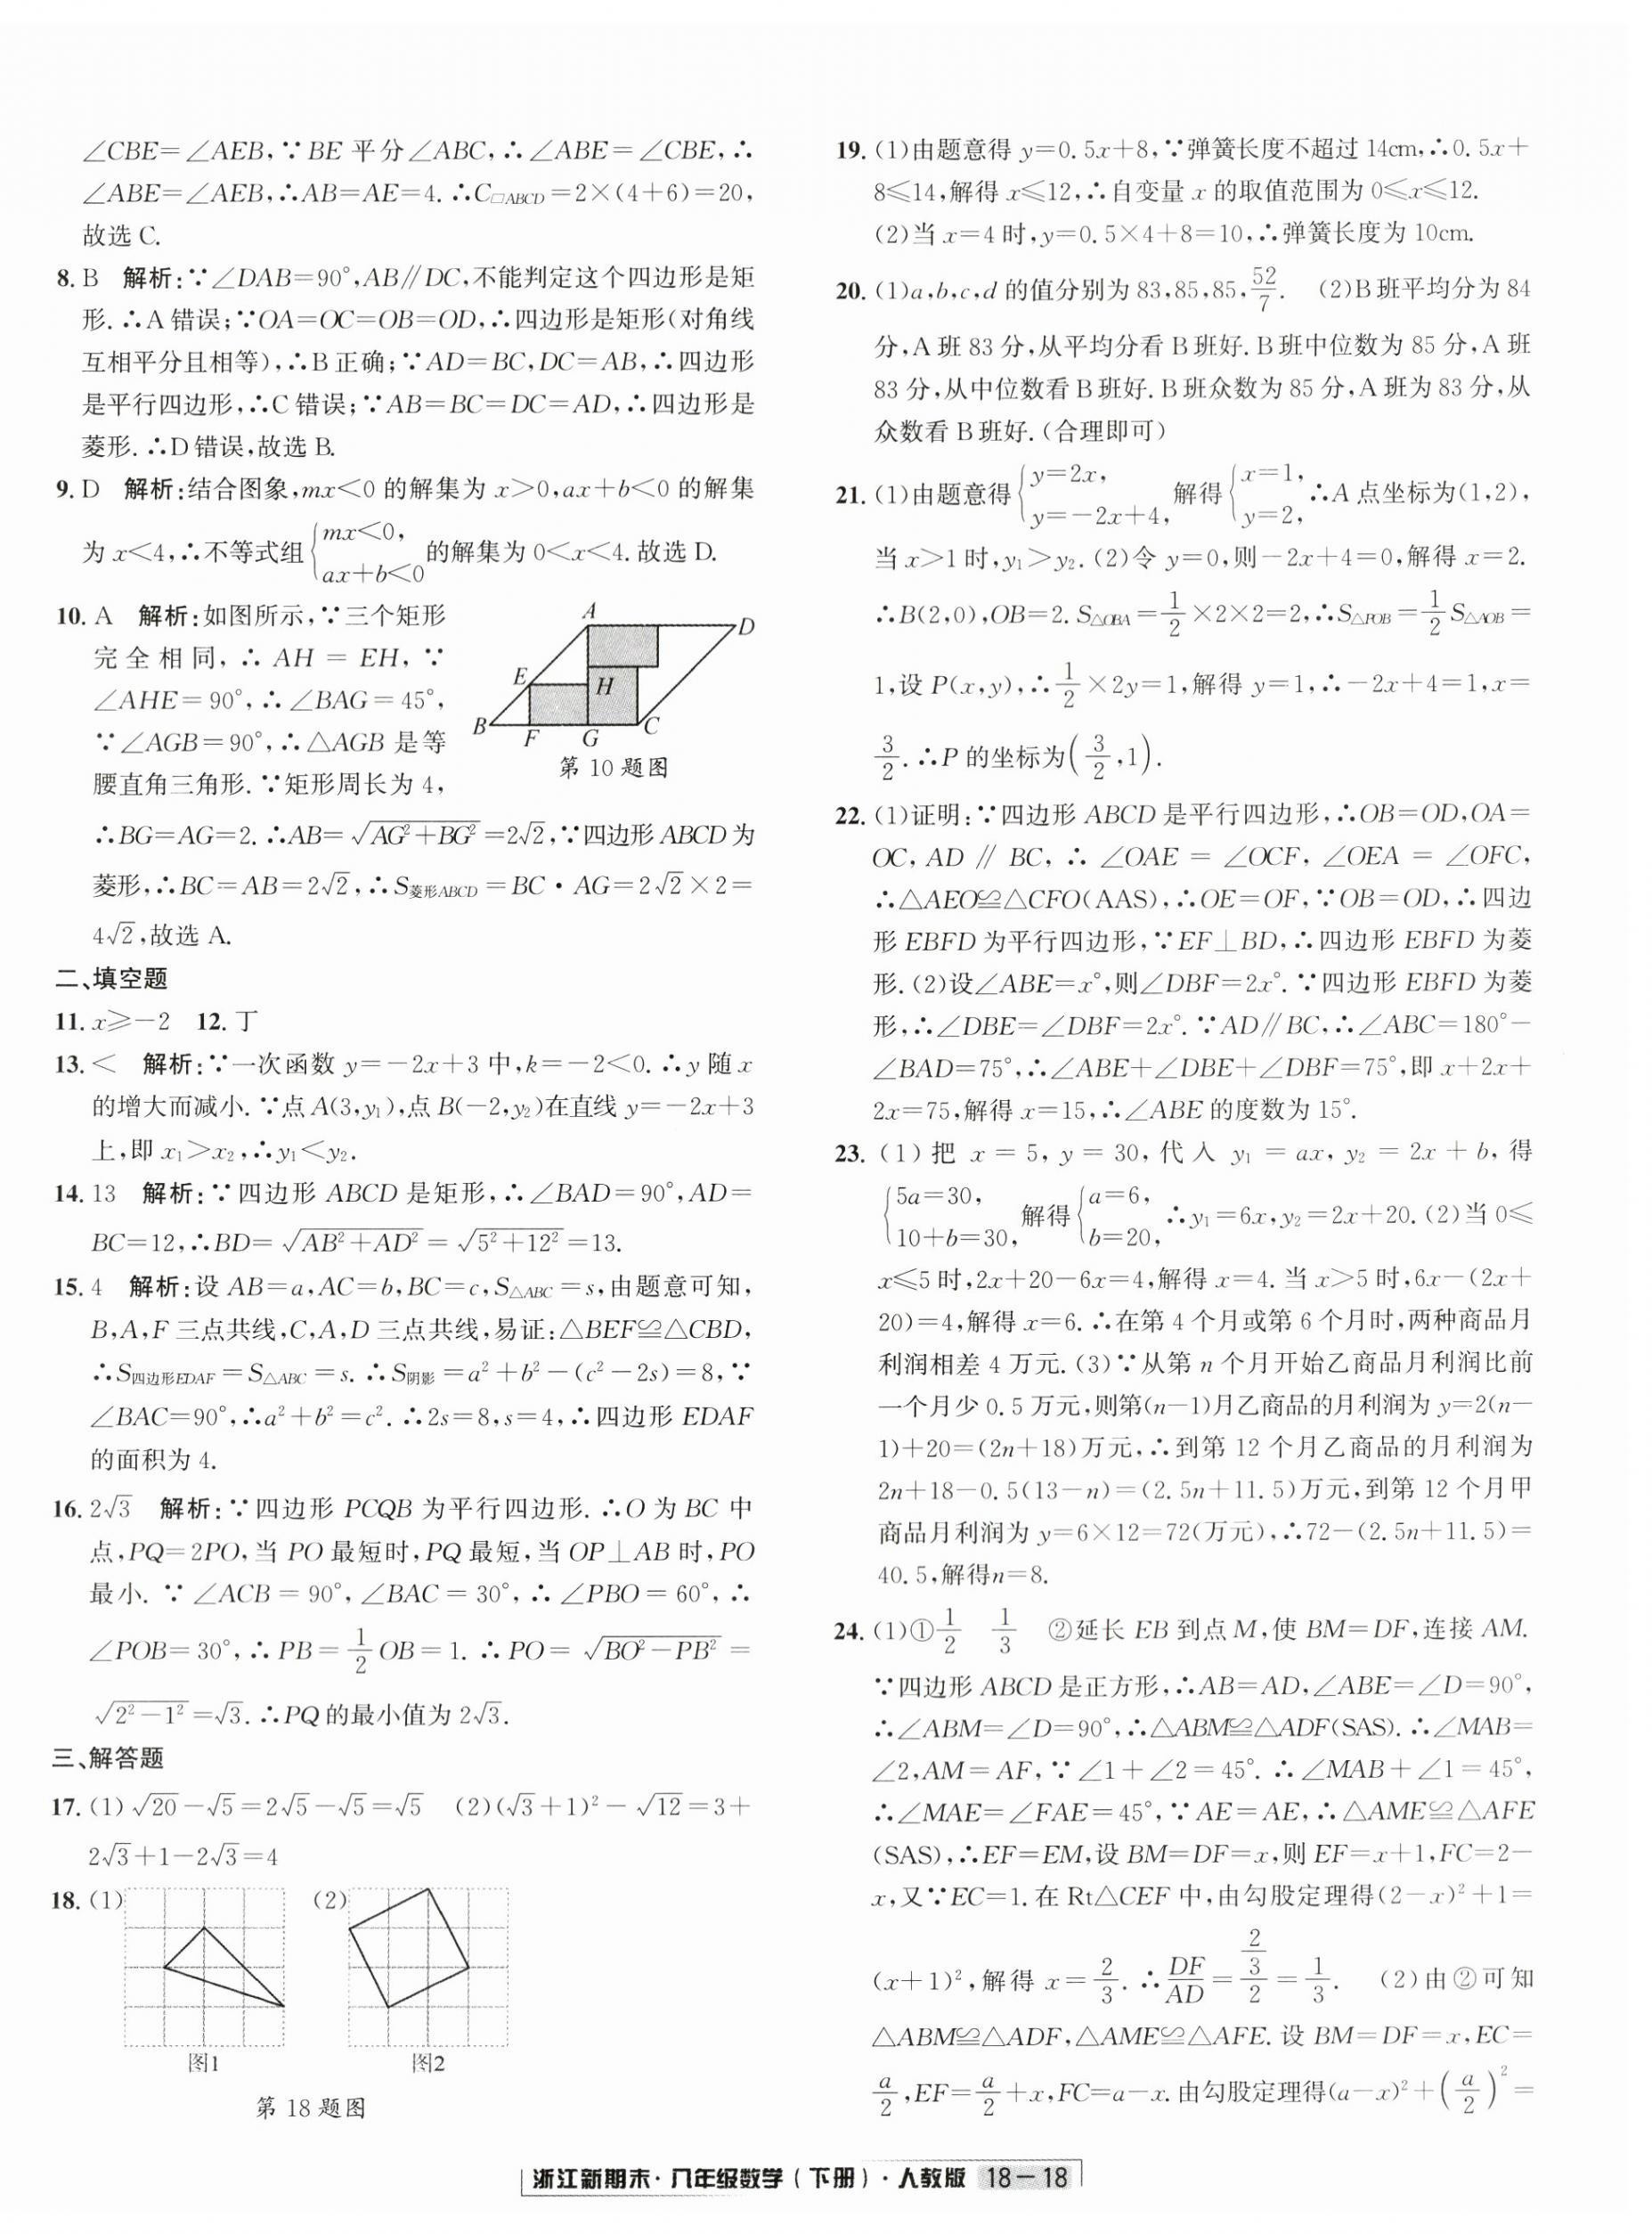 ∠CBE=∠AEB,∵BE 平分∠ABC,∴∠ABE=∠CBE,∴
∠ABE=∠AEB,∴AB=AE=4. ∴C□ABCD=2×(4+6)=20,
故选 C.
8. B 解析:∵∠DAB=90°,AB∥DC,不能判定这个四边形是矩
形. ∴A 错误;∵OA=OC=OB=OD,∴四边形是矩形(对角线
互相平分且相等),∴B 正确;∵AD=BC,DC=AB,∴四边形
是平行四边形,∴C 错误;∵AB=BC=DC=AD,∴四边形是
菱形. ∴D 错误,故选 B.
9. D 解析:结合图象,mx<0 的解集为 x>0,ax+b<0 的解集
为 x<4,∴不等式组{mx<0, ax+b<0 的解集为 0<x<4. 故选 D.
10. A 解析:如图所示,∵三个矩形
完全相同,∴AH=EH,∵
∠AHE=90°,∴∠BAG=45°,
∵∠AGB=90°,∴△AGB 是等
腰直角三角形. ∵矩形周长为 4,
A
D
E
H
B
F
G
C
第 10 题图
∴BG=AG=2. ∴AB=√(AG²+BG²)=2√2,∵四边形 ABCD 为
菱形,∴BC=AB=2√2,∴S菱形ABCD=BC·AG=2√2×2=
4√2,故选 A.
二、填空题
11. x≥-2 12. 丁
13. < 解析:∵一次函数 y=-2x+3 中,k=-2<0. ∴y 随 x
的增大而减小. ∵点 A(3,y₁),点 B(-2,y₂)在直线 y=-2x+3
上,即 x₁>x₂,∴y₁<y₂.
14. 13 解析:∵四边形 ABCD 是矩形,∴∠BAD=90°,AD=
BC=12,∴BD=√(AB²+AD²)=√(5²+12²)=13.
15. 4 解析:设 AB=a,AC=b,BC=c,S△ABC=s,由题意可知,
B,A,F 三点共线,C,A,D 三点共线,易证:△BEF≌△CBD,
∴S四边形EDAF=S△ABC=s. ∴S阴影=a²+b²-(c²-2s)=8,∵
∠BAC=90°,∴a²+b²=c². ∴2s=8,s=4,∴四边形 EDAF
的面积为 4.
16. 2√3 解析:∵四边形 PCQB 为平行四边形. ∴O 为 BC 中
点,PQ=2PO,当 PO 最短时,PQ 最短,当 OP⊥AB 时,PO
最小. ∵∠ACB=90°,∠BAC=30°,∴∠PBO=60°,∴
∠POB=30°,∴PB=1/2 OB=1. ∴PO=√(BO²-PB²)=
√(2²-1²)=√3. ∴PQ 的最小值为 2√3.
三、解答题
17. (1)√20-√5=2√5-√5=√5 (2)(√3+1)²-√12=3+
2√3+1-2√3=4
18. (1) (2)
图1 图2
第 18 题图
19. (1)由题意得 y=0.5x+8,∵弹簧长度不超过 14cm,∴0.5x+
8≤14,解得 x≤12,∴自变量 x 的取值范围为 0≤x≤12.
(2)当 x=4 时,y=0.5×4+8=10,∴弹簧长度为 10cm.
20. (1)a,b,c,d 的值分别为 83,85,85,52/7. (2)B 班平均分为 84
分,A 班 83 分,从平均分看 B 班好. B 班中位数为 85 分,A 班
83 分,从中位数看 B 班好. B 班众数为 85 分,A 班为 83 分,从
众数看 B 班好. (合理即可)
21. (1)由题意得{y=2x, y=-2x+4, 解得{x=1, y=2, ∴A 点坐标为(1,2),
当 x>1 时,y₁>y₂. (2)令 y=0,则-2x+4=0,解得 x=2.
∴B(2,0),OB=2. S△OBA=1/2×2×2=2,∴S△POB=1/2 S△AOB=
1,设 P(x,y),∴1/2×2y=1,解得 y=1,∴-2x+4=1,x=
3/2. ∴P 的坐标为(3/2,1).
22. (1)证明:∵四边形 ABCD 是平行四边形,∴OB=OD,OA=
OC,AD∥BC,∴∠OAE=∠OCF,∠OEA=∠OFC,
∴△AEO≌△CFO(AAS),∴OE=OF,∵OB=OD,∴四边
形 EBFD 为平行四边形,∵EF⊥BD,∴四边形 EBFD 为菱
形. (2)设∠ABE=x°,则∠DBF=2x°. ∵四边形 EBFD 为菱
形,∴∠DBE=∠DBF=2x°. ∵AD∥BC,∴∠ABC=180°-
∠BAD=75°,∴∠ABE+∠DBE+∠DBF=75°,即 x+2x+
2x=75,解得 x=15,∴∠ABE 的度数为 15°.
23. (1)把 x=5,y=30,代入 y₁=ax,y₂=2x+b,得
{5a=30, 10+b=30, 解得{a=6, b=20, ∴y₁=6x,y₂=2x+20. (2)当 0≤
x≤5 时,2x+20-6x=4,解得 x=4. 当 x>5 时,6x-(2x+
20)=4,解得 x=6. ∴在第 4 个月或第 6 个月时,两种商品月
利润相差 4 万元. (3)∵从第 n 个月开始乙商品月利润比前
一个月少 0.5 万元,则第(n-1)月乙商品的月利润为 y=2(n-
1)+20=(2n+18)万元,∴到第 12 个月乙商品的月利润为
2n+18-0.5(13-n)=(2.5n+11.5)万元,到第 12 个月甲
商品月利润为 y=6×12=72(万元),∴72-(2.5n+11.5)=
40.5,解得n=8.
24. (1)①1/2 1/3 ②延长 EB 到点 M,使 BM=DF,连接 AM.
∵四边形 ABCD 是正方形,∴AB=AD,∠ABE=∠D=90°,
∴∠ABM=∠D=90°,∴△ABM≌△ADF(SAS). ∴∠MAB=
∠2,AM=AF,∵∠1+∠2=45°. ∴∠MAB+∠1=45°,
∴∠MAE=∠FAE=45°,∵AE=AE,∴△AME≌△AFE
(SAS),∴EF=EM,设 BM=DF=x,则 EF=x+1,FC=2-
x,又∵EC=1. 在 Rt△CEF 中,由勾股定理得(2-x)²+1=
(x+1)²,解得 x=2/3. ∴DF/AD=(2/3)/2=1/3. (2)由②可知
△ABM≌△ADF,△AME≌△AFE. 设 BM=DF=x,EC=
a/2,EF=a/2+x,FC=a-x. 由勾股定理得(a-x)²+(a/2)²=
浙江新期末·八年级数学(下册)·人教版 18-18